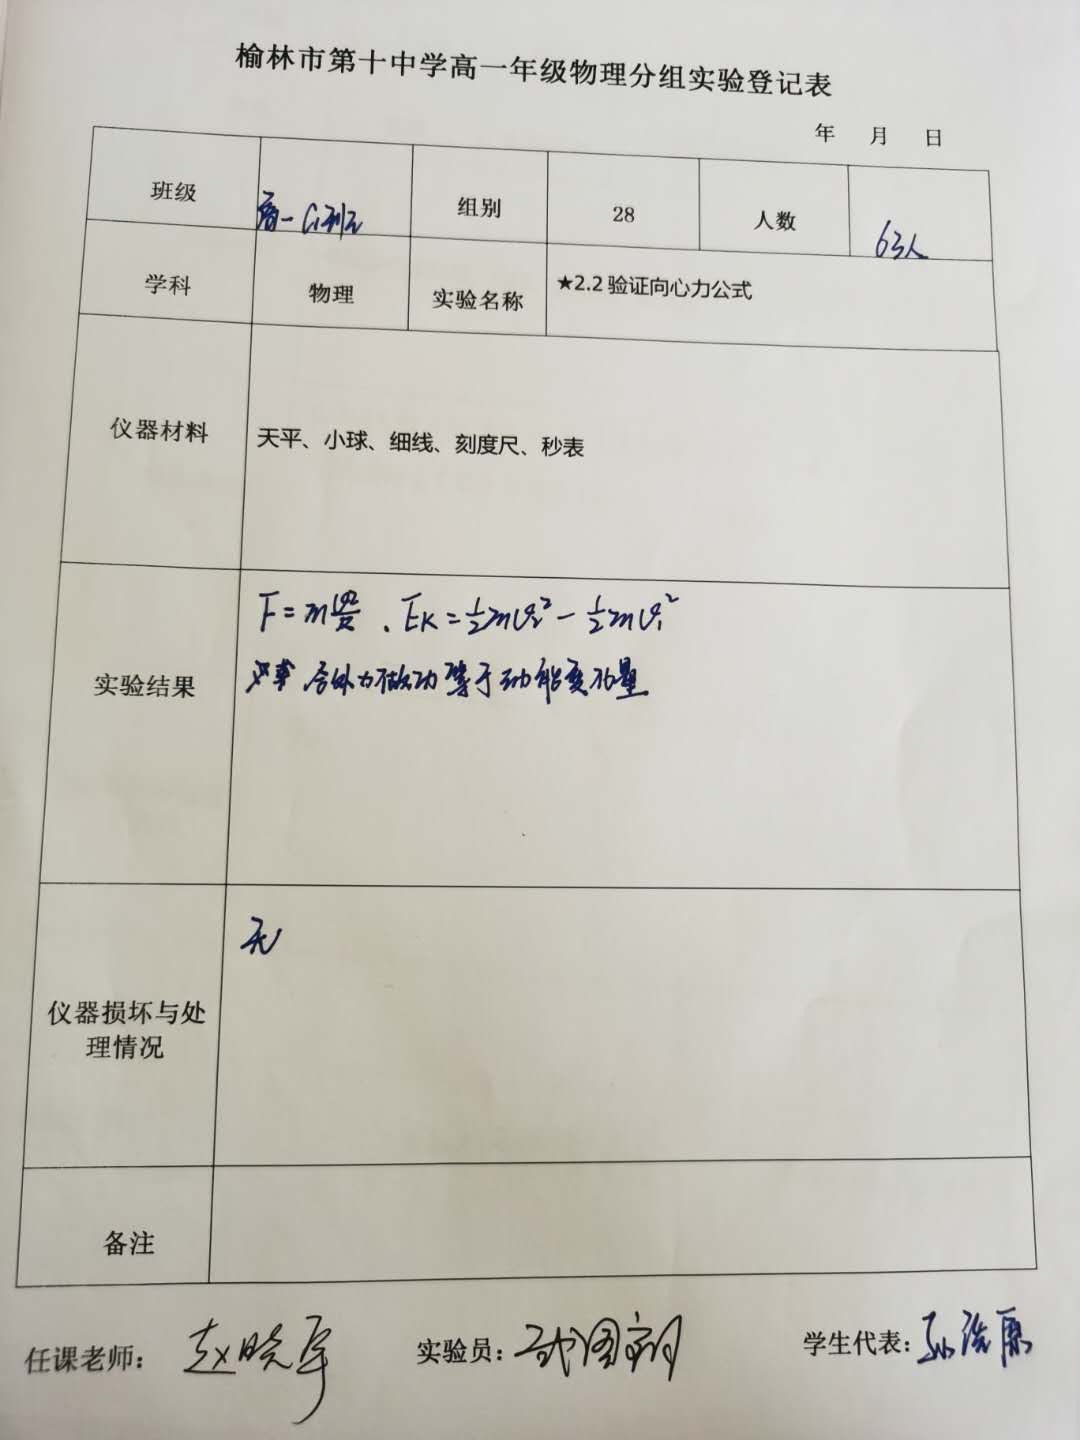 榆林市第十中学高一年级物理分组实验登记表
年 月 日
班级 高一 组别 28 人数 63人
学科 物理 实验名称 ★2.2 验证向心力公式
仪器材料 天平、小球、细线、刻度尺、秒表
实验结果
F=m v²/R . EK=½mv₂²-½mv₁²
合外力做功等于动能变化量
仪器损坏与处理情况 无
备注
任课老师: 赵晓军 实验员: 学生代表: